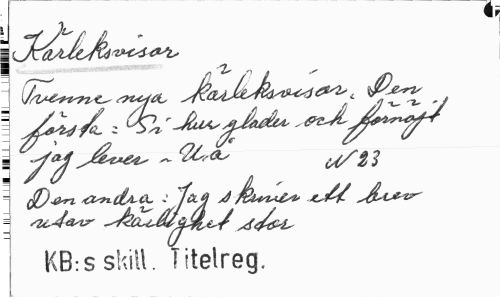 Kärleksvisor
Tvenne nya kärleksvisor. Den
första: Si hur glader och förnöjt
jag lever - U.å N 23
Den andra: Jag skriver ett brev
utav kärlighet stor
KB:s skill. Titelreg.